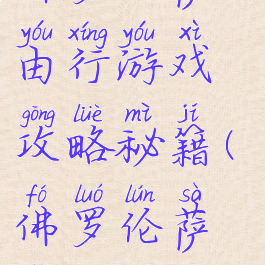 yóu xíng yóu xì
由行游戏
gōng lüè mì jí
攻略秘籍(
fó luó lún sà
佛罗伦萨